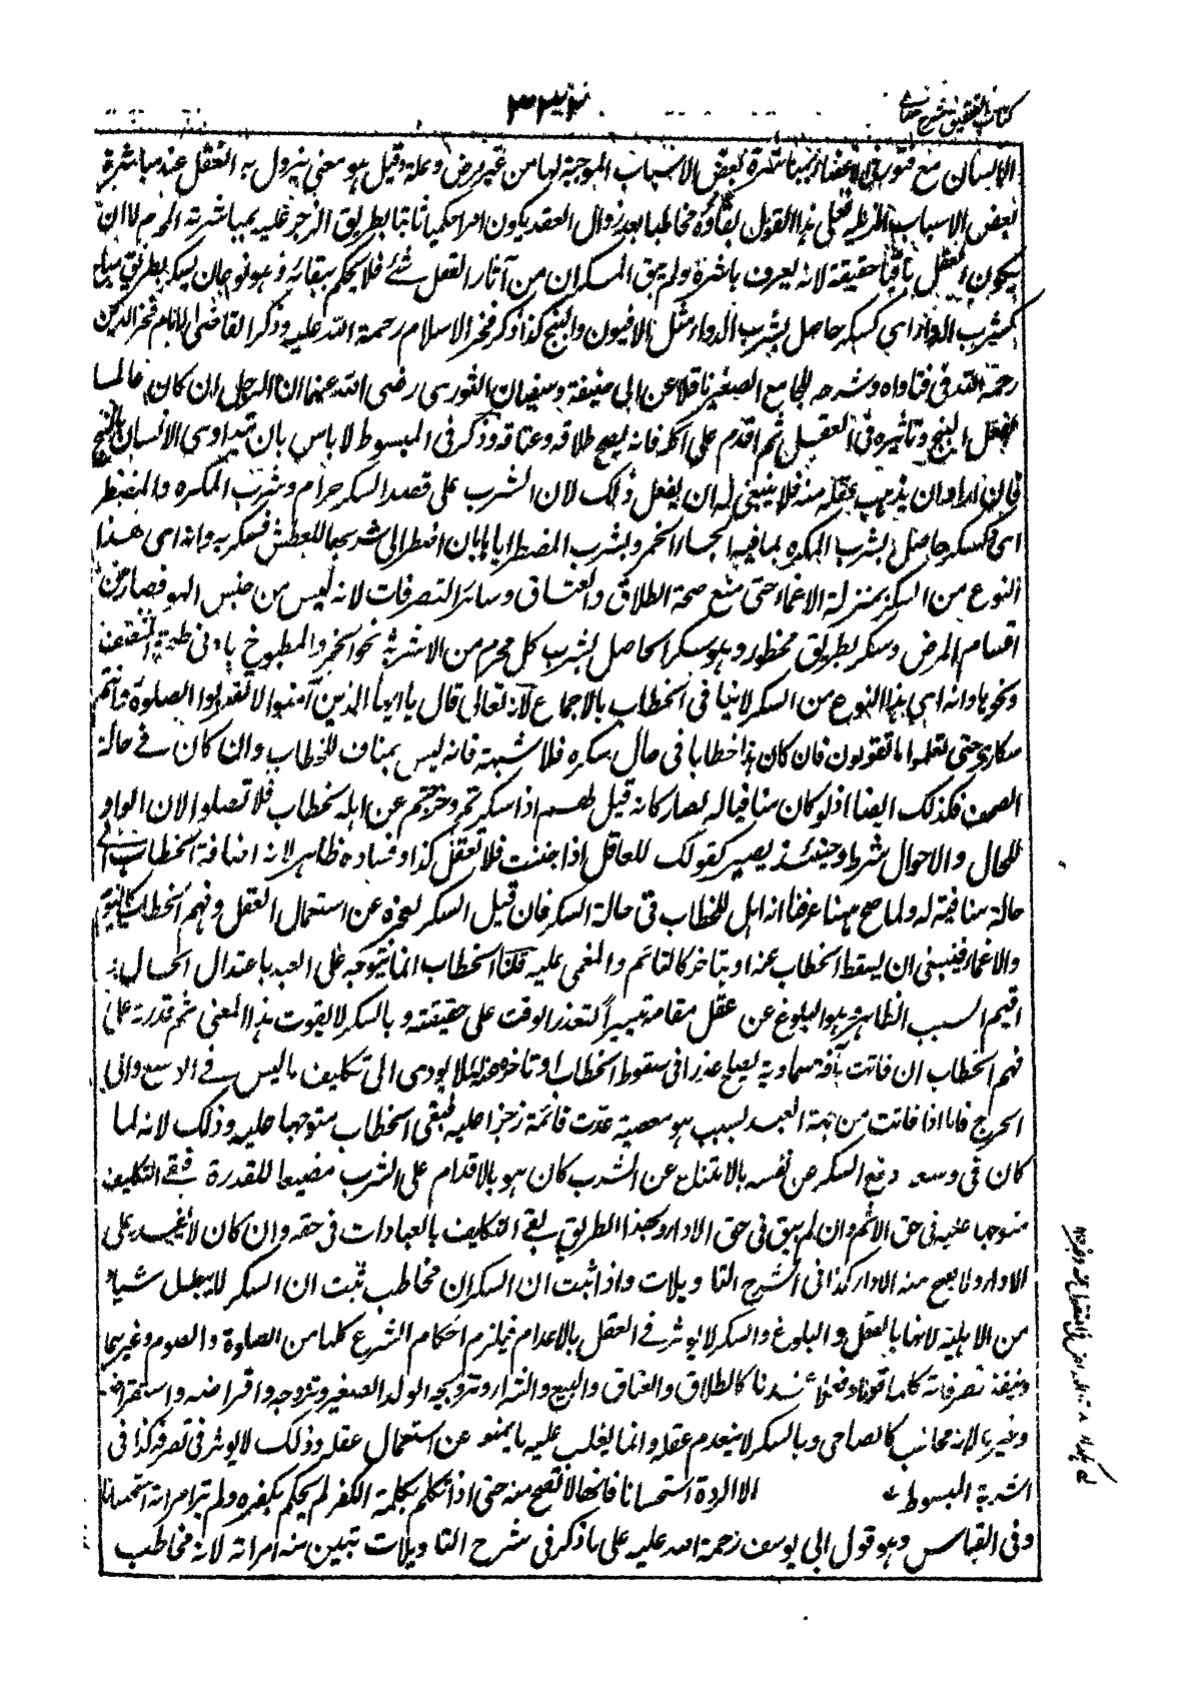 كتاب التحقيق شرح حسامي
٣٢٢
الانسان مع فتور في الاعضاء بمباشرة بعض الاسباب الموجبة لها من غير مرض وعلة وقيل هو معنى يزول به العقل عند مباشرة
بعض الاسباب المزيلة فعلى هذا القول بقاؤه مخاطبا بعد زوال العقل يكون امرا حكميا ثابتا بطريق الزجر عليه بمباشرته المحرم لا ان
يكون العقل باقيا حقيقة لانه يعرف باثره ولم يبق للسكران من آثار العقل شئ فلا يحكم ببقائه وهو نوعان سكر بطريق مباح
كشرب الدواء اى كسكر حاصل بشرب الدواء مثل الافيون والبنج كذا ذكر فخر الاسلام رحمة الله عليه وذكر القاضى الامام فخر الدين
رحمة الله فى فتاواه وشرحه للجامع الصغير ناقلا عن ابى حنيفة وسفيان الثورى رضى الله عنهما ان الرجل ان كان عالما
بفعل البنج وتاثيره فى العقل ثم اقدم على اكله فانه يصح طلاقه وعتاقه وذكر فى المبسوط لا باس بان يتداوى الانسان بالبنج
فان اراد ان يذهب عقله منه فلا ينبغى له ان يفعل ذلك لان الشرب على قصد السكر حرام وشرب المكره والمضطر
اى كسكر حاصل بشرب المكره بما فيه الجاء الخمر وبشرب المضطر اياها بان اضطر الى شربها للعطش فسكر به وانه اى هذا
النوع من السكر بمنزلة الاغماء حتى منع صحة الطلاق والعتاق وسائر التصرفات لانه ليس من جنس اللهو فصار من
اقسام المرض وسكر بطريق محظور وهو سكر الحاصل بشرب كل محرم من الاشربة نحو الخمر والمطبوخ بادنى طبخة المنصف
ونحوها وانه اى هذا النوع من السكر لا ينافى الخطاب بالاجماع لان الله تعالى قال يا ايها الذين آمنوا لا تقربوا الصلوة وانتم
سكارى حتى تعلموا ما تقولون فان كان هذا خطابا فى حال سكره فلا شبهة فانه ليس بمناف للخطاب وان كان فے حالة
الصحو فكذلك ايضا اذ لو كان منافيا له لصار كانه قيل لهم اذا سكرتم وخرجتم عن اهلية الخطاب فلا تصلوا لان الواو
للحال والاحوال شروط وحينئذ يصير كقولك للعاقل اذا جننت فلا تفعل كذا وفساده ظاهر لانه اضافة الخطاب الى
حالة منافية له ولما صح ههنا عرفنا انه اهل للخطاب فى حالة السكر فان قيل السكر يعجزه عن استعمال العقل وفهم الخطاب كالنوم
والاغماء فينبغى ان يسقط الخطاب عنه او يتاخر كالنائم والمغمى عليه قلنا الخطاب انما يتوجه على العبد باعتدال الحال
اقيم السبب الظاهر وهو البلوغ عن عقل مقامه تيسيرا لتعذر الوقف على حقيقته و بالسكر لا يفوت هذا المعنى ثم قدرته على
فهم الخطاب ان فاتت بآفة سماوية يصلح عذرا فى سقوط الخطاب او تاخره لئلا يؤدى الى تكليف ما ليس فے الوسع والى
الحرج فاما اذا فاتت من جهة العبد بسبب هو معصية عدت قائمة زجرا عليه فبقى الخطاب متوجها عليه وذلك لانه لما
كان فى وسعه دفع السكر عن نفسه بالامتناع عن الشرب كان هو بالاقدام على الشرب مضيعا للقدرة فبقى التكليف
متوجها عليه فى حق الاثم وان لم يبق فى حق الاداء وبهذا الطريق بقى التكليف بالعبادات فى حقه وان كان لا يقدر على
الاداء ولا يصح منه الاداء كذا فى الشرح التاويلات واذا ثبت ان السكران مخاطب ثبت ان السكر لا يبطل شيئا
من الاهلية لانها بالعقل والبلوغ والسكر لا يؤثر فے العقل بالاعدام فيلزم احكام الشرع كلها من الصلوة والصوم وغيرهما
وينفذ تصرفاته كلها قولا وفعلا عندنا كالطلاق والعتاق والبيع والشراء وتزويجه الولد الصغير وتزوجه واقراضه واستقراضه
وغيرها لانه مخاطب كالصاحى وبالسكر لا ينعدم عقله وانما يغلب عليه ما يمنعه عن استعمال عقله وذلك لا يؤثر فى تصرفه كذا فى
اشربة المبسوط الا الردة استحسانا فانها لا تصح منه حتى اذا تكلم بكلمة الكفر لم يحكم بكفره ولم تبن امراته استحسانا
وفى القياس وهو قول ابى يوسف رحمة الله عليه على ما ذكر فى شرح التاويلات تبين منه امراته لانه مخاطب